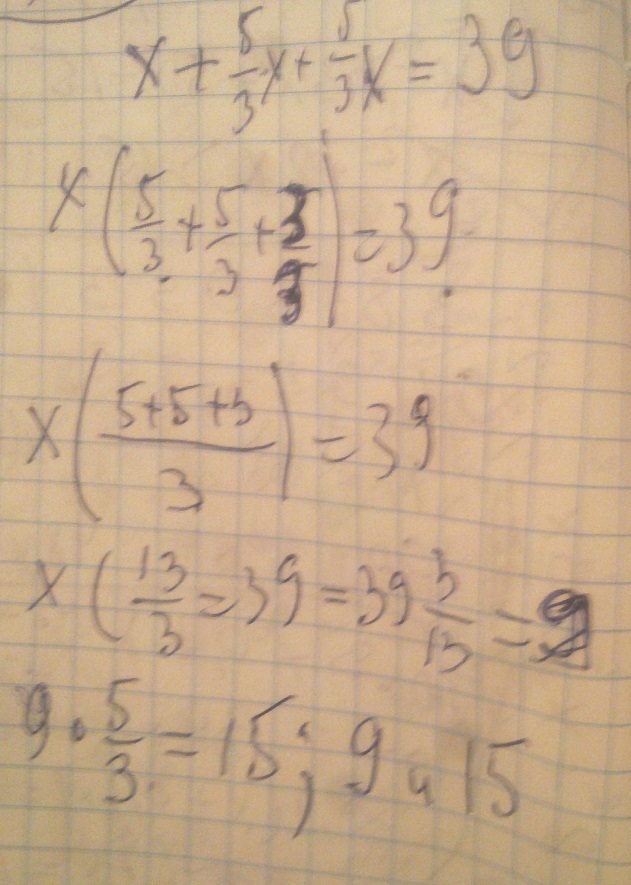 x + 5/3 x + 5/3 x = 39
x (5/3 + 5/3 + 3/3) = 39
x (5+5+3 / 3) = 39
x (13/3 = 39 = 39 3/13 = 9
9 · 5/3 = 15; 9 и 15